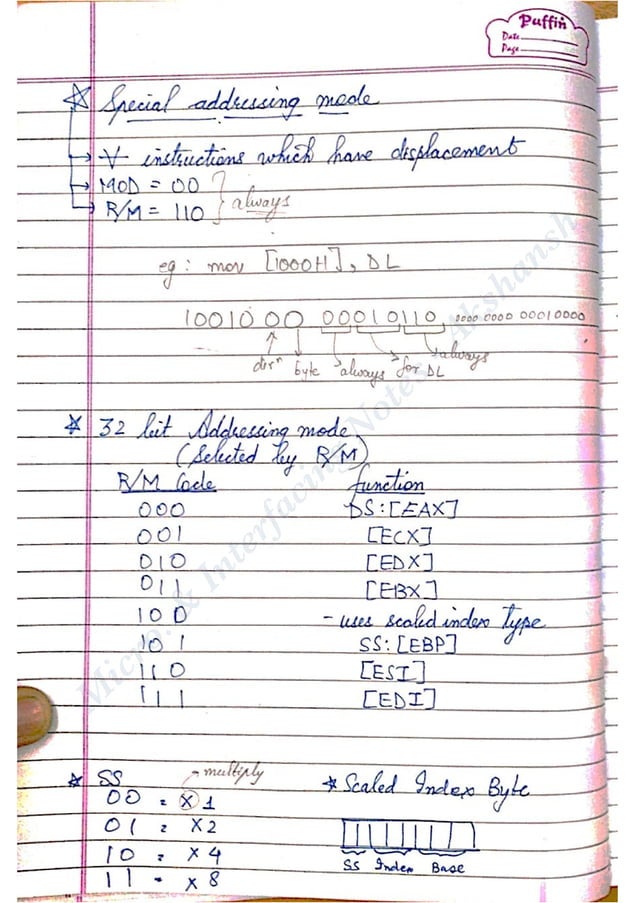 Puffin
Date
Page
Special addressing mode
∀ instructions which have displacement
MOD = 00
R/M = 110
always
eg : mov [1000H], DL
10010 00 00010110 0000 0000 00010000
dirⁿ byte always for DL always
32 bit Addressing mode
(Selected by R/M)
R/M Code function
000 DS:[EAX]
001 [ECX]
010 [EDX]
011 [EBX]
100 - uses scaled index type
101 SS:[EBP]
110 [ESI]
111 [EDI]
SS multiply
00 = X 1
01 = X 2
10 = X 4
11 = X 8
* Scaled Index Byte
SS Index Base
Micro. & Interfacing Notes Akshansh